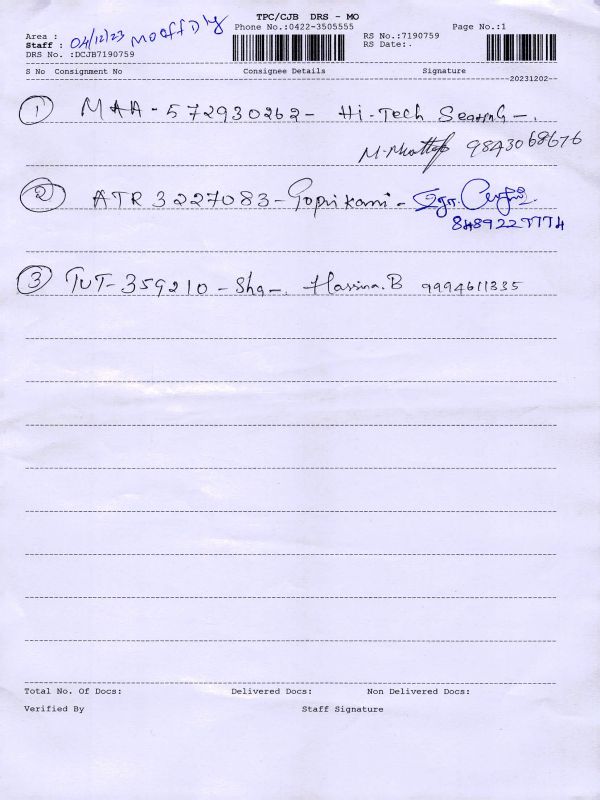 TPC/CJB DRS - MO
Phone No.:0422-3505555
Page No.:1
Area :
Staff : 04/12/23 MO
DRS No. :DCJB7190759
RS No.:7190759
RS Date:.
S No Consignment No Consignee Details Signature
20231202
1 MAA - 572930262 - Hi-Tech
9843068676
2 ATR 3227083 - Goprikani -
8489227774
3 TUT - 359210 - Sha - . Hassina.B 9994611335
Total No. Of Docs: Delivered Docs: Non Delivered Docs:
Verified By Staff Signature